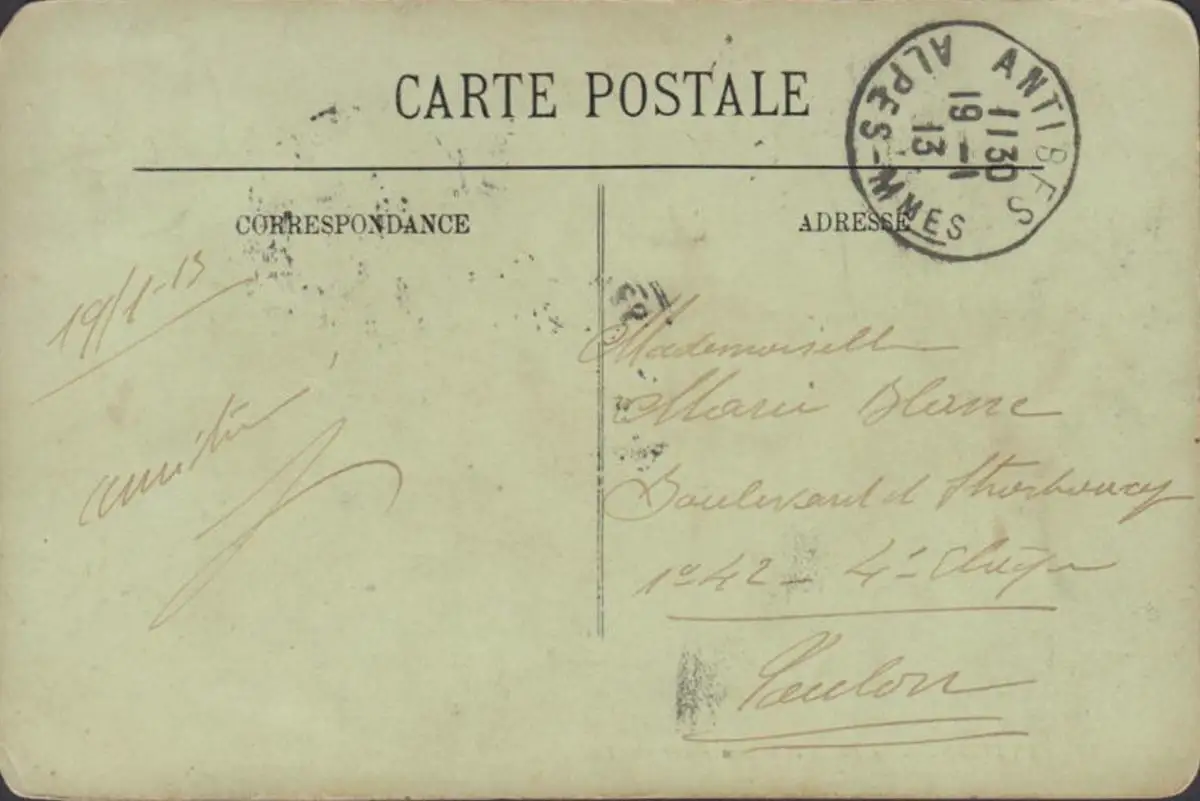 CARTE POSTALE
ANTIBES
1130
19-1
13
ALPES-MMES
CORRESPONDANCE
ADRESSE
19/1-13
amitié
Mademoiselle
Marie Blanc
Boulevard d Strasbourg
42 - 4è
Toulon